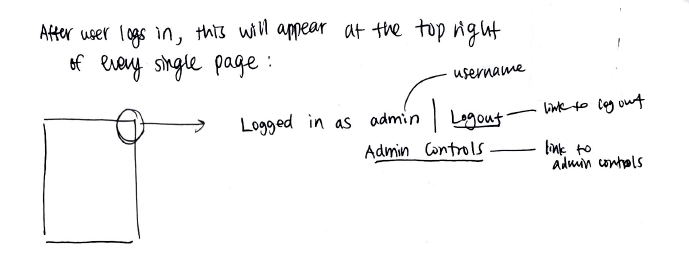 After user logs in, this will appear at the top right
of every single page:
username
Logged in as admin | Logout
link to log out
Admin Controls
link to
admin controls